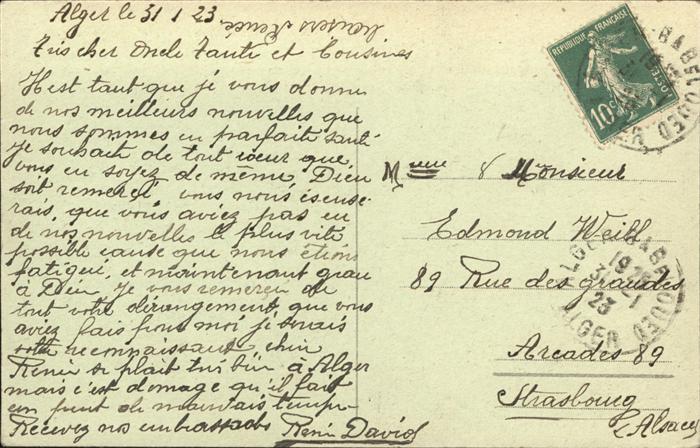 Alger le 31 1 23
Très cher Oncle Tante et Cousines
Il est tant que je vous donne
de nos meilleurs nouvelles que
nous sommes en parfaite santé
je souhaite de tout coeur que
vous en soyez de même Dieu
soit remercié vous nous éscuse-
rais, que vous aviez pas eu
de nos nouvelles le plus vite
possible cause que nous étions
fatigué, et maintenant grace
à Dieu, je vous remercie de
tout votre dérangement que vous
aviez fais pour moi je serais
votre reconnaissant chère
Renée se plait très bien à Alger
mais c'est domage qu'il fait
un peut de mauvais temps
Recevez nos embrassades Renée David
REPUBLIQUE FRANÇAISE
POSTES
10c
BAB EL OUED
Mme & Monsieur
Edmond Weill
89 Rue des grandes
Arcades 89
Strasbourg
Alsace
ALGER BAB EL OUED
31-1
23